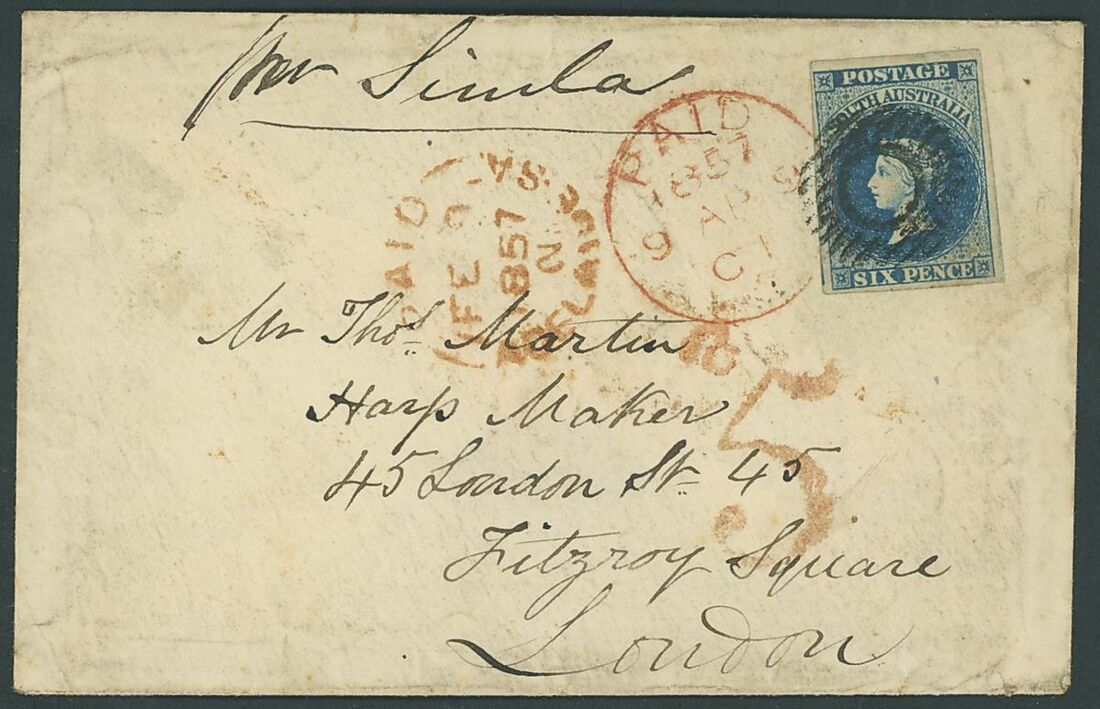 per Simla
POSTAGE
SOUTH AUSTRALIA
SIX PENCE
PAID
1857
AP
9
PAID
FE
1857
S.A.
Mr Thos Martin
Harp Maker
45 London St 45
Fitzroy Square
London
5